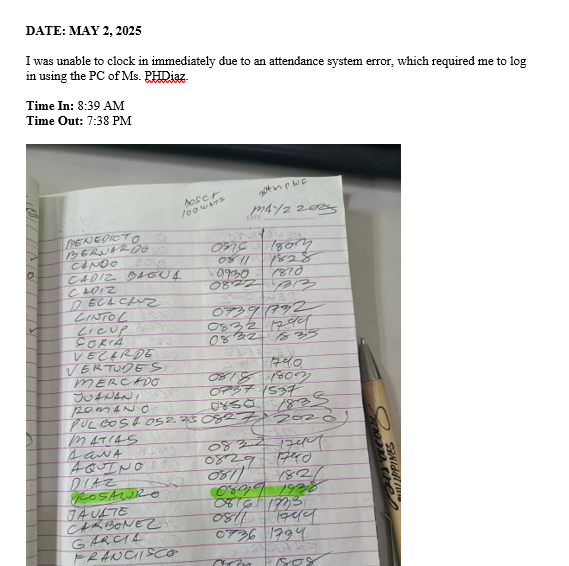 DATE: MAY 2, 2025
I was unable to clock in immediately due to an attendance system error, which required me to log
in using the PC of Ms. PHDiaz.
Time In: 8:39 AM
Time Out: 7:38 PM
MAY 2 2025
BENEDICTO
BERNARDO 0816 1807
CANDO 0811 1828
CADIZ BAENA 0930 1810
CADIZ 0822
DELACRUZ
LINTOL 0739 1732
LICUP 0832 1744
SORIA 0832 1835
VELARDE
VERTUDES 1740
MERCADO 0818 1803
JUANANI 0737 1537
ROMANO 0850 1838
PULBOSA 052.25 0827 2020
MATIAS
AGNA 0832 1744
AQUINO 0829 1740
DIAZ 0811
ROSAURO 0839 1938
JAVATE 0816
CARBONEZ 0811 1744
GARCIA 0736 1794
FRANCIISCO
PILIPPINES